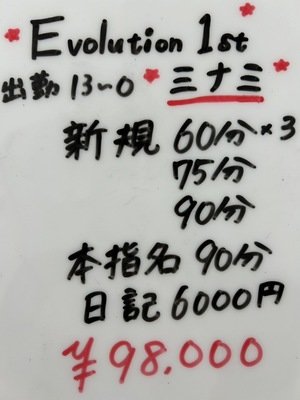 Evolution 1st
出勤 13~0 ミナミ
新規 60分×3
75分
90分
本指名 90分
日記 6000円
¥98.000